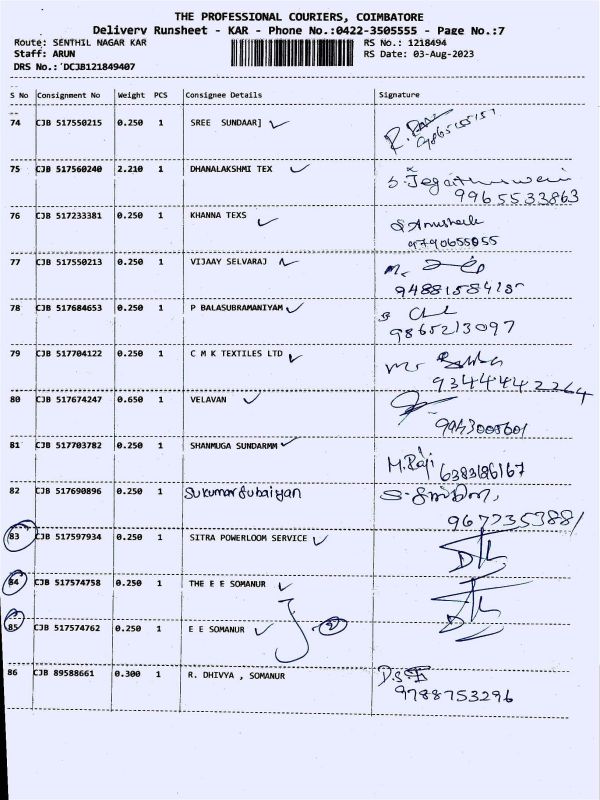 THE PROFESSIONAL COURIERS, COIMBATORE
Delivery Runsheet - KAR - Phone No.:0422-3505555 - Page No.:7
Route: SENTHIL NAGAR KAR RS No.: 1218494
Staff: ARUN RS Date: 03-Aug-2023
DRS No.: DCJB121849407
S No Consignment No Weight PCS Consignee Details Signature
74 CJB 517550215 0.250 1 SREE SUNDAAR]
75 CJB 517560240 2.210 1 DHANALAKSHMI TEX
9965533863
76 CJB 517233381 0.250 1 KHANNA TEXS
9790655055
77 CJB 517550213 0.250 1 VIJAAY SELVARAJ
78 CJB 517684653 0.250 1 P BALASUBRAMANIYAM
9865213097
79 CJB 517704122 0.250 1 C M K TEXTILES LTD
80 CJB 517674247 0.650 1 VELAVAN
9943005601
81 CJB 517703782 0.250 1 SHANMUGA SUNDARMM
M.Raji 6383186167
82 CJB 517690896 0.250 1 Sukumar Subaiyan
9677353881
83 CJB 517597934 0.250 1 SITRA POWERLOOM SERVICE
84 CJB 517574758 0.250 1 THE E E SOMANUR
85 CJB 517574762 0.250 1 E E SOMANUR
86 CJB 89588661 0.300 1 R. DHIVYA , SOMANUR
9788753296